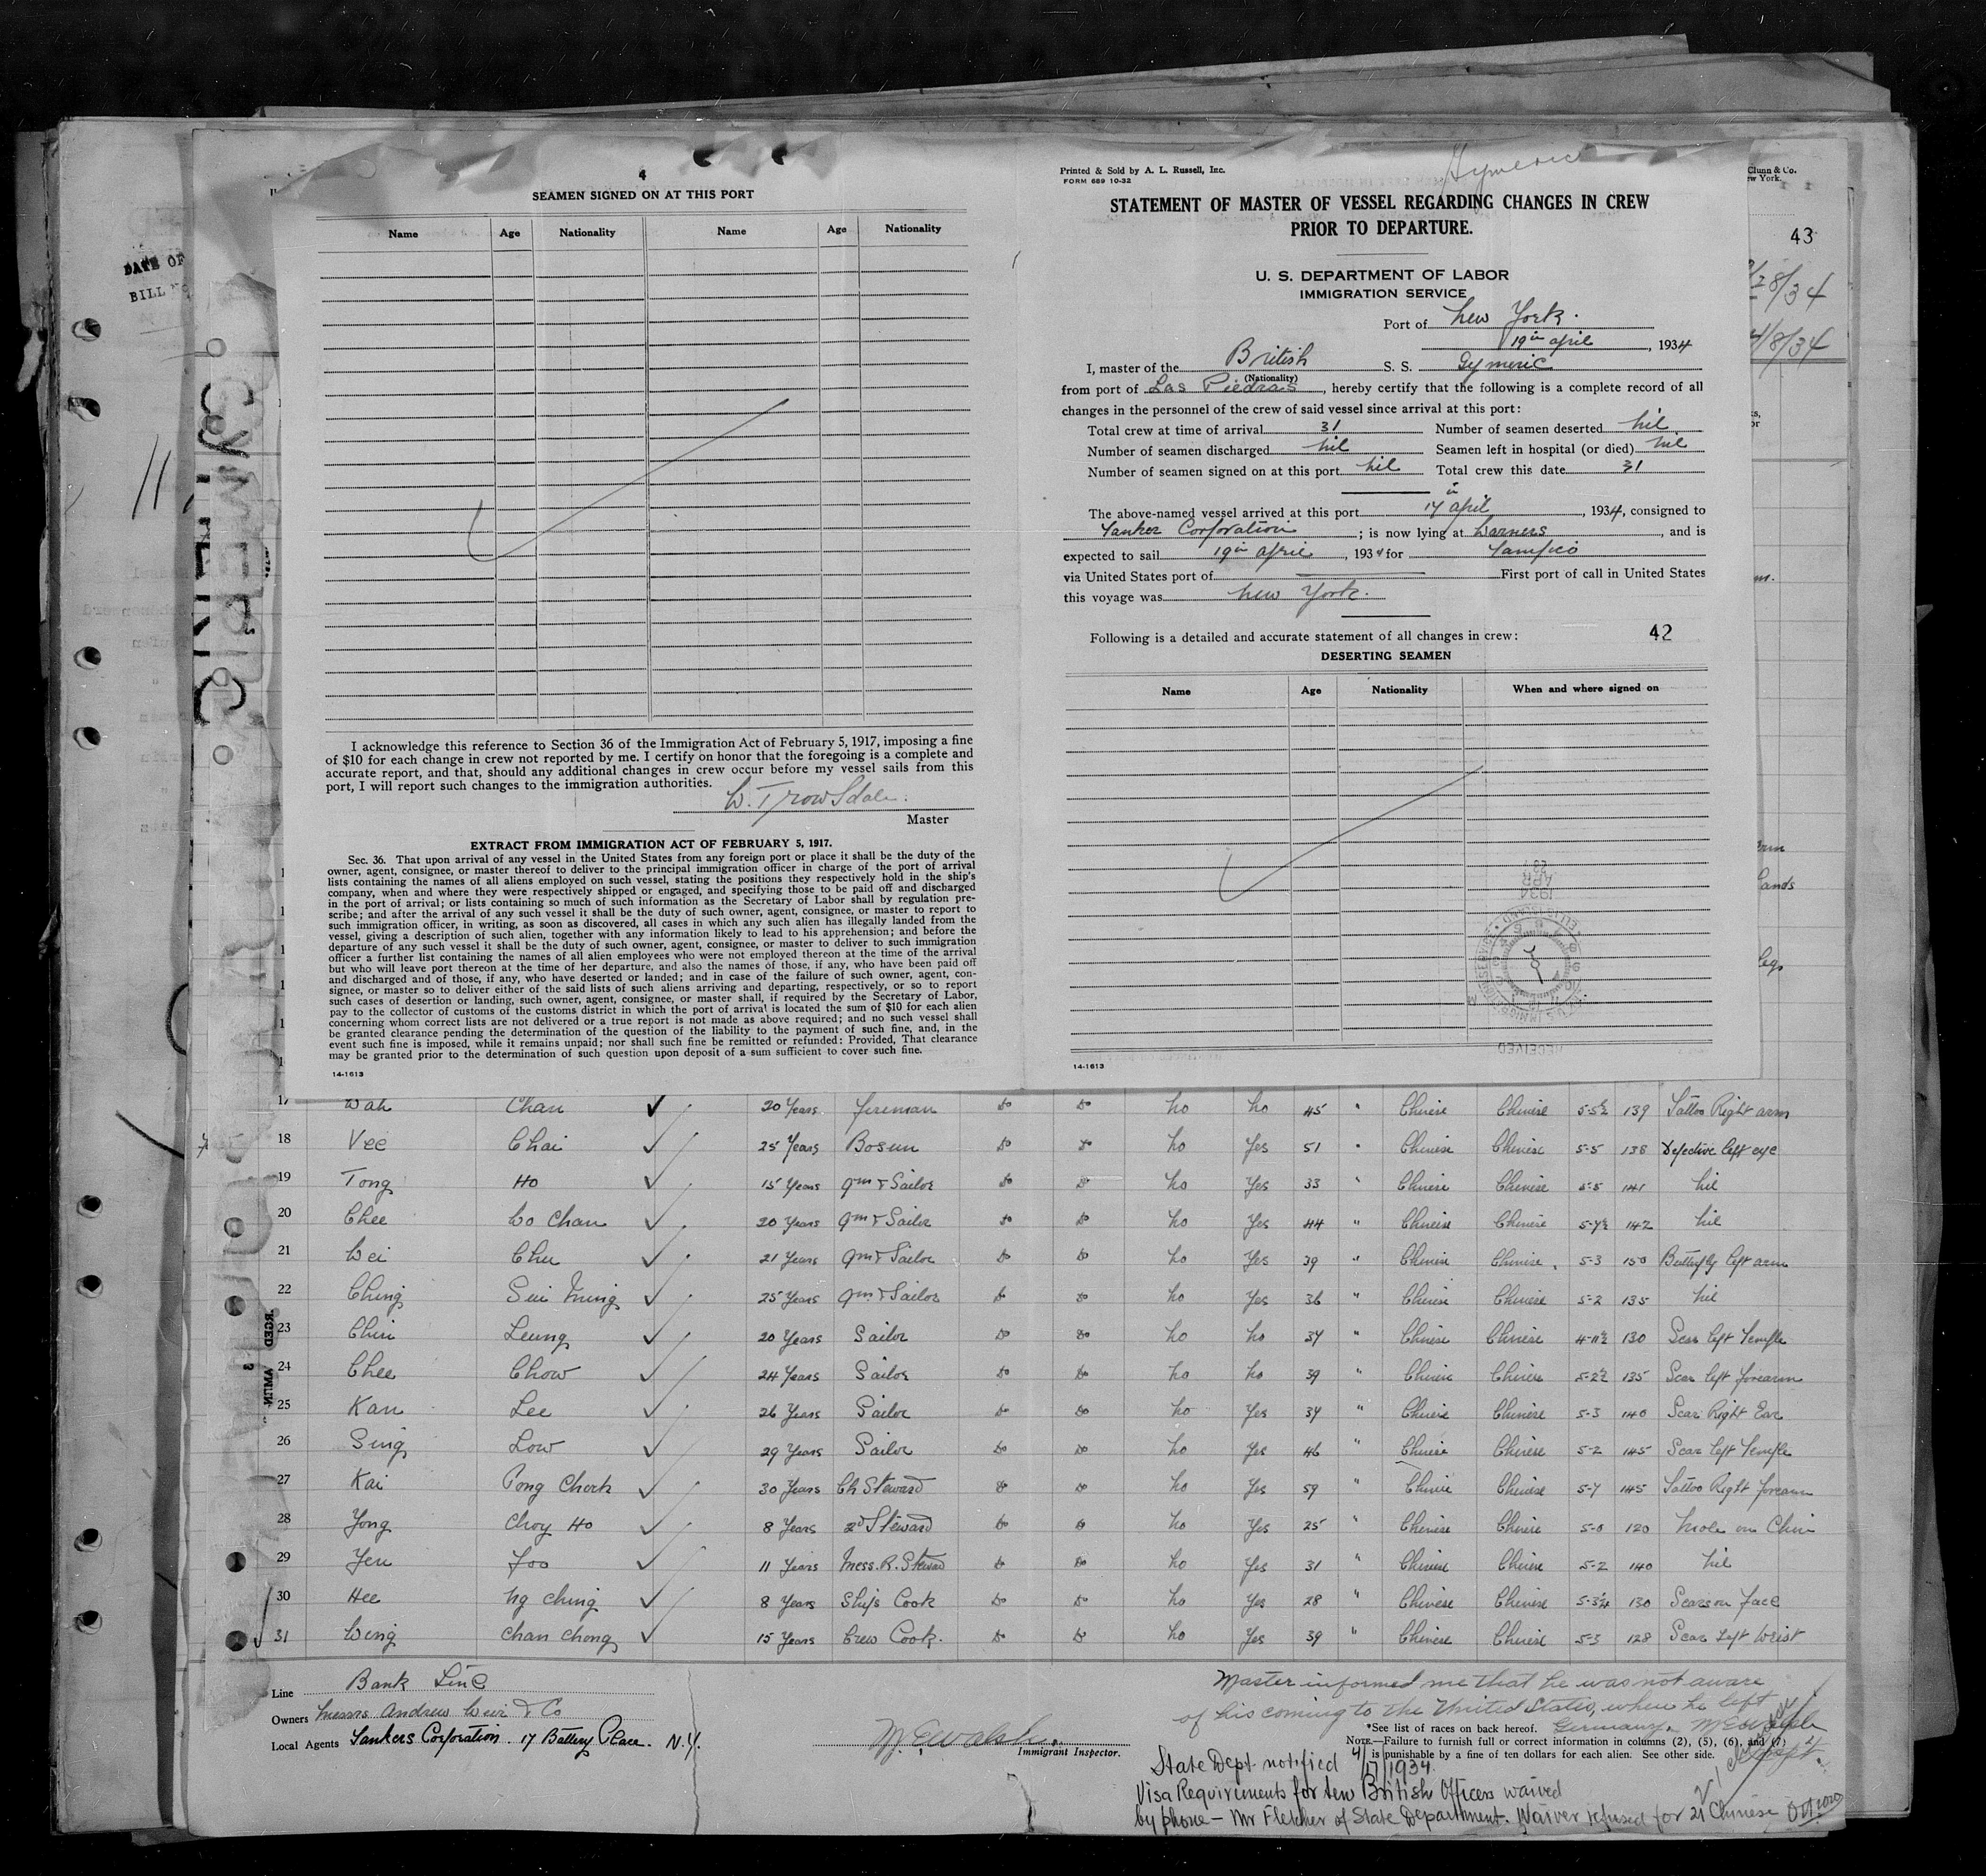 4
SEAMEN SIGNED ON AT THIS PORT
Name Age Nationality Name Age Nationality
I acknowledge this reference to Section 36 of the Immigration Act of February 5, 1917, imposing a fine
of $10 for each change in crew not reported by me. I certify on honor that the foregoing is a complete and
accurate report, and that, should any additional changes in crew occur before my vessel sails from this
port, I will report such changes to the immigration authorities.
W. Trowsdale.
Master
EXTRACT FROM IMMIGRATION ACT OF FEBRUARY 5, 1917.
Sec. 36. That upon arrival of any vessel in the United States from any foreign port or place it shall be the duty of the
owner, agent, consignee, or master thereof to deliver to the principal immigration officer in charge of the port of arrival
lists containing the names of all aliens employed on such vessel, stating the positions they respectively hold in the ship's
company, when and where they were respectively shipped or engaged, and specifying those to be paid off and discharged
in the port of arrival; or lists containing so much of such information as the Secretary of Labor shall by regulation pre-
scribe; and after the arrival of any such vessel it shall be the duty of such owner, agent, consignee, or master to report to
such immigration officer, in writing, as soon as discovered, all cases in which any such alien has illegally landed from the
vessel, giving a description of such alien, together with any information likely to lead to his apprehension; and before the
departure of any such vessel it shall be the duty of such owner, agent, consignee, or master to deliver to such immigration
officer a further list containing the names of all alien employees who were not employed thereon at the time of the arrival
but who will leave port thereon at the time of her departure, and also the names of those, if any, who have been paid off
and discharged and of those, if any, who have deserted or landed; and in case of the failure of such owner, agent, con-
signee, or master so to deliver either of the said lists of such aliens arriving and departing, respectively, or so to report
such cases of desertion or landing, such owner, agent, consignee, or master shall, if required by the Secretary of Labor,
pay to the collector of customs of the customs district in which the port of arrival is located the sum of $10 for each alien
concerning whom correct lists are not delivered or a true report is not made as above required; and no such vessel shall
be granted clearance pending the determination of the question of the liability to the payment of such fine, and, in the
event such fine is imposed, while it remains unpaid; nor shall such fine be remitted or refunded: Provided, That clearance
may be granted prior to the determination of such question upon deposit of a sum sufficient to cover such fine.
14-1613
Printed & Sold by A. L. Russell, Inc.
FORM 689 10-32
Gymeric
STATEMENT OF MASTER OF VESSEL REGARDING CHANGES IN CREW
PRIOR TO DEPARTURE.
U. S. DEPARTMENT OF LABOR
IMMIGRATION SERVICE
Port of New York.
19th April, 1934
I, master of the British S. S. Gymeric
(Nationality)
from port of Las Piedras, hereby certify that the following is a complete record of all
changes in the personnel of the crew of said vessel since arrival at this port:
Total crew at time of arrival 31 Number of seamen deserted nil
Number of seamen discharged nil Seamen left in hospital (or died) nil
Number of seamen signed on at this port nil Total crew this date 31
The above-named vessel arrived at this port 17th April, 1934, consigned to
Tanker Corporation; is now lying at Warners, and is
expected to sail 19th April, 1934 for Tampico
via United States port of First port of call in United States
this voyage was New York.
Following is a detailed and accurate statement of all changes in crew: 42
DESERTING SEAMEN
Name Age Nationality When and where signed on
RECEIVED
APR
1934
14-1613
Clunn & Co.
ew York.
43
8/34
4/8/34
DATE OF
BILL NO
GYMERIC
17 Wah Chan ✓ 20 Years Fireman Do Do No No 45 " Chinese Chinese 5-5½ 139 Tattoo Right arm
18 Vee Chai ✓ 25 Years Bosun Do Do No Yes 51 " Chinese Chinese 5-5 138 Defective left eye
19 Tong Ho ✓ 15 Years Qmr Sailor Do Do No Yes 33 " Chinese Chinese 5-5 141 Nil
20 Chee Wo Chan ✓ 20 Years Qmr Sailor Do Do No Yes 44 " Chinese Chinese 5-7½ 142 Nil
21 Wei Chu ✓ 21 Years Qmr Sailor Do Do No Yes 39 " Chinese Chinese 5-3 150 Butterfly left arm
22 Ching Sui Ming ✓ 25 Years Qmr Sailor Do Do No Yes 36 " Chinese Chinese 5-2 135 Nil
23 Chin Leung ✓ 20 Years Sailor Do Do No No 37 " Chinese Chinese 4-11½ 130 Scar left Temple
24 Chee Chow ✓ 24 Years Sailor Do Do No No 39 " Chinese Chinese 5-2½ 135 Scar left forearm
25 Kan Lee ✓ 26 Years Sailor Do Do No Yes 37 " Chinese Chinese 5-3 140 Scar Right Ear
26 Sing Low ✓ 29 Years Sailor Do Do No Yes 46 " Chinese Chinese 5-2 145 Scar left Temple
27 Kai Pong Chock ✓ 30 Years Ch Steward Do Do No Yes 59 " Chinese Chinese 5-7 145 Tattoo Right forearm
28 Yong Choy Ho ✓ 8 Years 2nd Steward Do Do No Yes 25 " Chinese Chinese 5-0 120 Mole on Chin
29 Yen Foo ✓ 11 Years Mess.R.Steward Do Do No Yes 31 " Chinese Chinese 5-2 140 Nil
30 Hee Ng Ching ✓ 8 Years Ships Cook Do Do No Yes 28 " Chinese Chinese 5-3¾ 130 Scars on Face
31 Wing Chan Chong ✓ 15 Years Crew Cook. Do Do No Yes 39 " Chinese Chinese 5-3 128 Scar Left Wrist
Line Bank Line
Owners Messrs Andrew Weir & Co
Local Agents Tankers Corporation. 17 Battery Place. N.Y.
M. E. Walsh.
Immigrant Inspector.
Master informed me that he was not aware
of his coming to the United States, when he left
*See list of races on back hereof. Germany. M E Walsh
NOTE.—Failure to furnish full or correct information in columns (2), (5), (6), and (7)
is punishable by a fine of ten dollars for each alien. See other side.
State Dept notified 4/17/1934.
Visa Requirements for ten British Officers waived
by phone — Mr Fletcher of State Department. Waiver refused for 21 Chinese